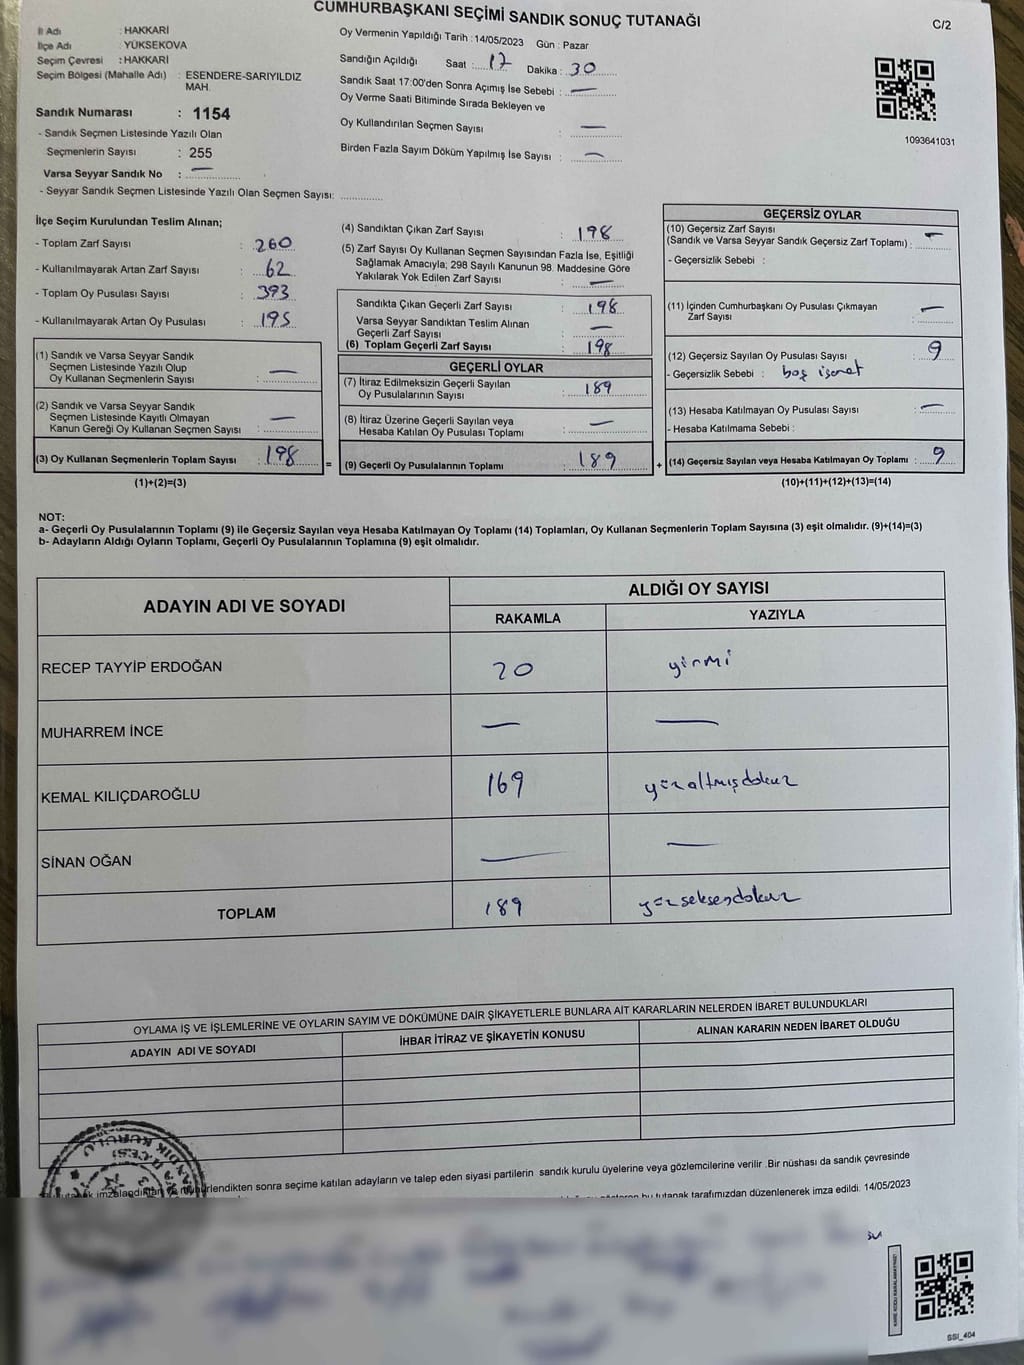 CUMHURBAŞKANI SEÇİMİ SANDIK SONUÇ TUTANAĞI
C/2
İl Adı : HAKKARİ
İlçe Adı : YÜKSEKOVA
Seçim Çevresi : HAKKARİ
Seçim Bölgesi (Mahalle Adı) : ESENDERE-SARIYILDIZ
MAH.
Sandık Numarası : 1154
- Sandık Seçmen Listesinde Yazılı Olan
Seçmenlerin Sayısı : 255
Varsa Seyyar Sandık No : —
- Seyyar Sandık Seçmen Listesinde Yazılı Olan Seçmen Sayısı: ..............
Oy Vermenin Yapıldığı Tarih : 14/05/2023 Gün : Pazar
Sandığın Açıldığı Saat : 17 Dakika : 30
Sandık Saat 17:00'den Sonra Açımış İse Sebebi : —
Oy Verme Saati Bitiminde Sırada Bekleyen ve
Oy Kullandırılan Seçmen Sayısı : —
Birden Fazla Sayım Döküm Yapılmış İse Sayısı : —
1093641031
İlçe Seçim Kurulundan Teslim Alınan;
- Toplam Zarf Sayısı : 260
- Kullanılmayarak Artan Zarf Sayısı : 62
- Toplam Oy Pusulası Sayısı : 393
- Kullanılmayarak Artan Oy Pusulası : 195
(1) Sandık ve Varsa Seyyar Sandık
Seçmen Listesinde Yazılı Olup
Oy Kullanan Seçmenlerin Sayısı : —
(2) Sandık ve Varsa Seyyar Sandık
Seçmen Listesinde Kayıtlı Olmayan
Kanun Gereği Oy Kullanan Seçmen Sayısı : —
(3) Oy Kullanan Seçmenlerin Toplam Sayısı : 198
(1)+(2)=(3)
=
(4) Sandıktan Çıkan Zarf Sayısı : 198
(5) Zarf Sayısı Oy Kullanan Seçmen Sayısından Fazla İse, Eşitliği
Sağlamak Amacıyla; 298 Sayılı Kanunun 98. Maddesine Göre
Yakılarak Yok Edilen Zarf Sayısı : —
Sandıkta Çıkan Geçerli Zarf Sayısı : 198
Varsa Seyyar Sandıktan Teslim Alınan
Geçerli Zarf Sayısı : —
(6) Toplam Geçerli Zarf Sayısı : 198
GEÇERLİ OYLAR
(7) İtiraz Edilmeksizin Geçerli Sayılan
Oy Pusulalarının Sayısı : 189
(8) İtiraz Üzerine Geçerli Sayılan veya
Hesaba Katılan Oy Pusulası Toplamı : —
(9) Geçerli Oy Pusulalarının Toplamı : 189
+
GEÇERSİZ OYLAR
(10) Geçersiz Zarf Sayısı
(Sandık ve Varsa Seyyar Sandık Geçersiz Zarf Toplamı) : —
- Geçersizlik Sebebi :
(11) İçinden Cumhurbaşkanı Oy Pusulası Çıkmayan
Zarf Sayısı : —
(12) Geçersiz Sayılan Oy Pusulası Sayısı : 9
- Geçersizlik Sebebi : boş işaret
(13) Hesaba Katılmayan Oy Pusulası Sayısı : —
- Hesaba Katılmama Sebebi :
(14) Geçersiz Sayılan veya Hesaba Katılmayan Oy Toplamı : 9
(10)+(11)+(12)+(13)=(14)
NOT:
a- Geçerli Oy Pusulalarının Toplamı (9) ile Geçersiz Sayılan veya Hesaba Katılmayan Oy Toplamı (14) Toplamları, Oy Kullanan Seçmenlerin Toplam Sayısına (3) eşit olmalıdır. (9)+(14)=(3)
b- Adayların Aldığı Oyların Toplamı, Geçerli Oy Pusulalarının Toplamına (9) eşit olmalıdır.
ADAYIN ADI VE SOYADI
ALDIĞI OY SAYISI
RAKAMLA YAZIYLA
RECEP TAYYİP ERDOĞAN 20 yirmi
MUHARREM İNCE — —
KEMAL KILIÇDAROĞLU 169 yüzaltmışdokuz
SİNAN OĞAN — —
TOPLAM 189 yüzseksendokuz
OYLAMA İŞ VE İŞLEMLERİNE VE OYLARIN SAYIM VE DÖKÜMÜNE DAİR ŞİKAYETLERLE BUNLARA AİT KARARLARIN NELERDEN İBARET BULUNDUKLARI
ADAYIN ADI VE SOYADI İHBAR İTİRAZ VE ŞİKAYETİN KONUSU ALINAN KARARIN NEDEN İBARET OLDUĞU
imzalandıktan sonra seçime katılan adayların ve talep eden siyasi partilerin sandık kurulu üyelerine veya gözlemcilerine verilir .Bir nüshası da sandık çevresinde
bu tutanak tarafımızdan düzenlenerek imza edildi. 14/05/2023
SSI_404